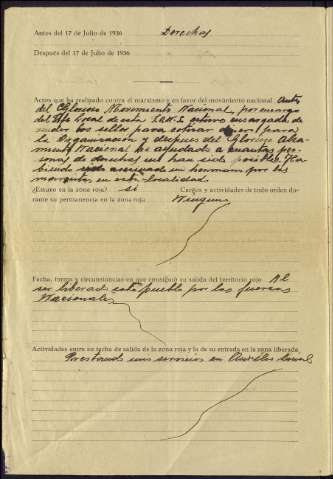 Antes del 17 de Julio de 1936 Derechas
Después del 17 de Julio de 1936
Actos que ha realizado contra el marxismo y en favor del movimiento nacional Antes
del Glorioso Movimiento Nacional, por encargo
del Jefe Local de esta estuvo encargada de
los sellos para cotizar para
la Organización y despues del Glorioso
Nacional ha ayudado a cuantas per-
sonas de derechas me han sido posible, ha-
biendo un hermano por los
en esta localidad.
¿Estuvo en la zona roja? si Cargos y actividades de todo orden du-
rante su permanencia en la zona roja Ninguno
Fecha, forma y circunstancias en que consiguió su salida del territorio rojo Al
ser liberado este pueblo por las fuerzas
Nacionales
Actividades entre su fecha de salida de la zona roja y la de su entrada en la zona liberada
Prestando mis servicios en Auxilio Social